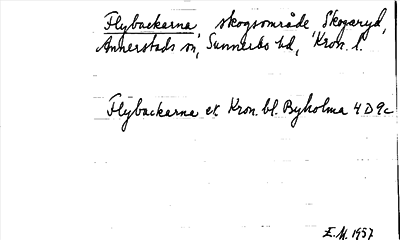 Flybackarna, skogsområde, Skogaryd,
Annerstads sn, Sunnerbo hd, Kron. l.
Flybackarna ek Kron. bl. Byholma 4D9c
E.M. 1957